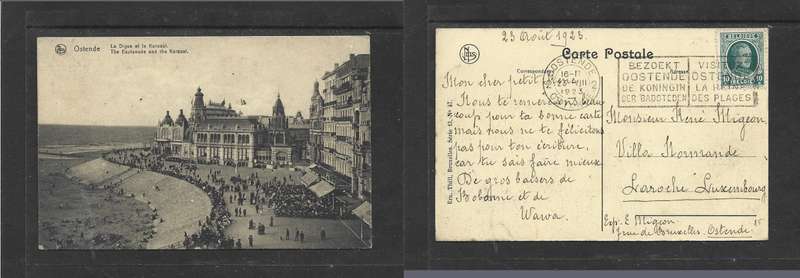 Ostende
La Digue et le Kursaal.
The Esplanade and the Kursaal.
23 Août 1923.
Carte Postale
Correspondance
Mon cher petit
Nous te remercions beau
coup pour ta bonne carte
mais nous ne te félicitons
pas pour ton écriture,
car tu sais faire mieux.
De gros baisers de
Bobonne et de
Wawa.
Ern. Thill, Bruxelles. Série 13. No
OOSTENDE
16-11
VIII
1923
BEZOEKT
OOSTENDE
DE KONINGIN
DER BADSTEDEN
VISITEZ
OSTENDE
LA REINE
DES PLAGES
BELGIQUE
10
10
BELGIË
Monsieur René Migeon,
Villa Normande
Laroche Luxembourg
Exp. E Migeon
rue de Bruxelles, Ostende.